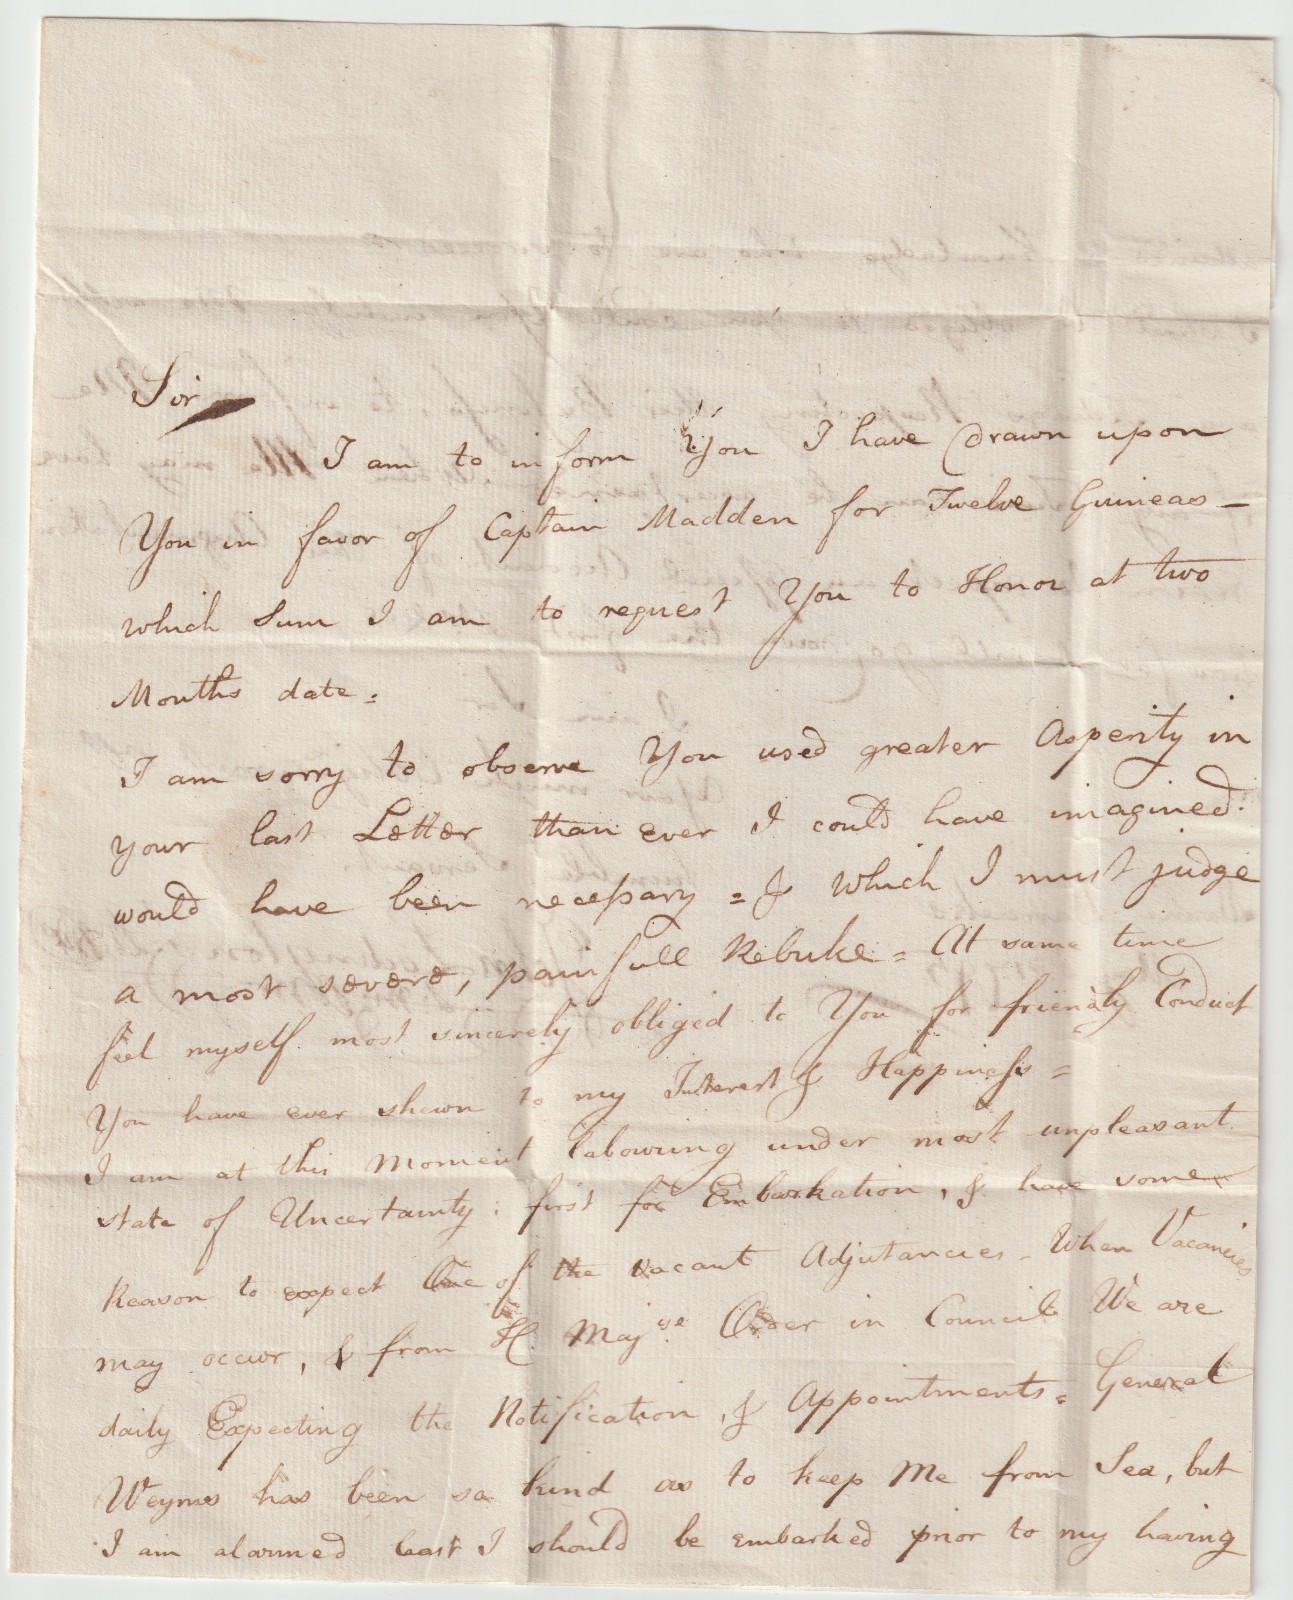 Sir
I am to inform You I have drawn upon
You in favor of Captain Madden for Twelve Guineas –
which Sum I am to request You to Honor at two
Months date =
I am sorry to observe You used greater Asperity in
your last Letter than ever I could have imagined
would have been necessary = & which I must judge
a most severe, painfull Rebuke = At same time
feel myself most sincerely obliged to You for friendly Conduct
You have ever shewn to my Interest & Happiness =
I am at this Moment labouring under most unpleasant
state of Uncertainty; first for Embarkation, & have some
Reason to expect One of the vacant Adjutancies – When Vacancies
may occur, & from H. Majse. Order in Council We are
daily Expecting the Notification, & Appointments = General
Weyms has been so kind as to keep Me from Sea, but
I am alarmed least I should be embarked prior to my having